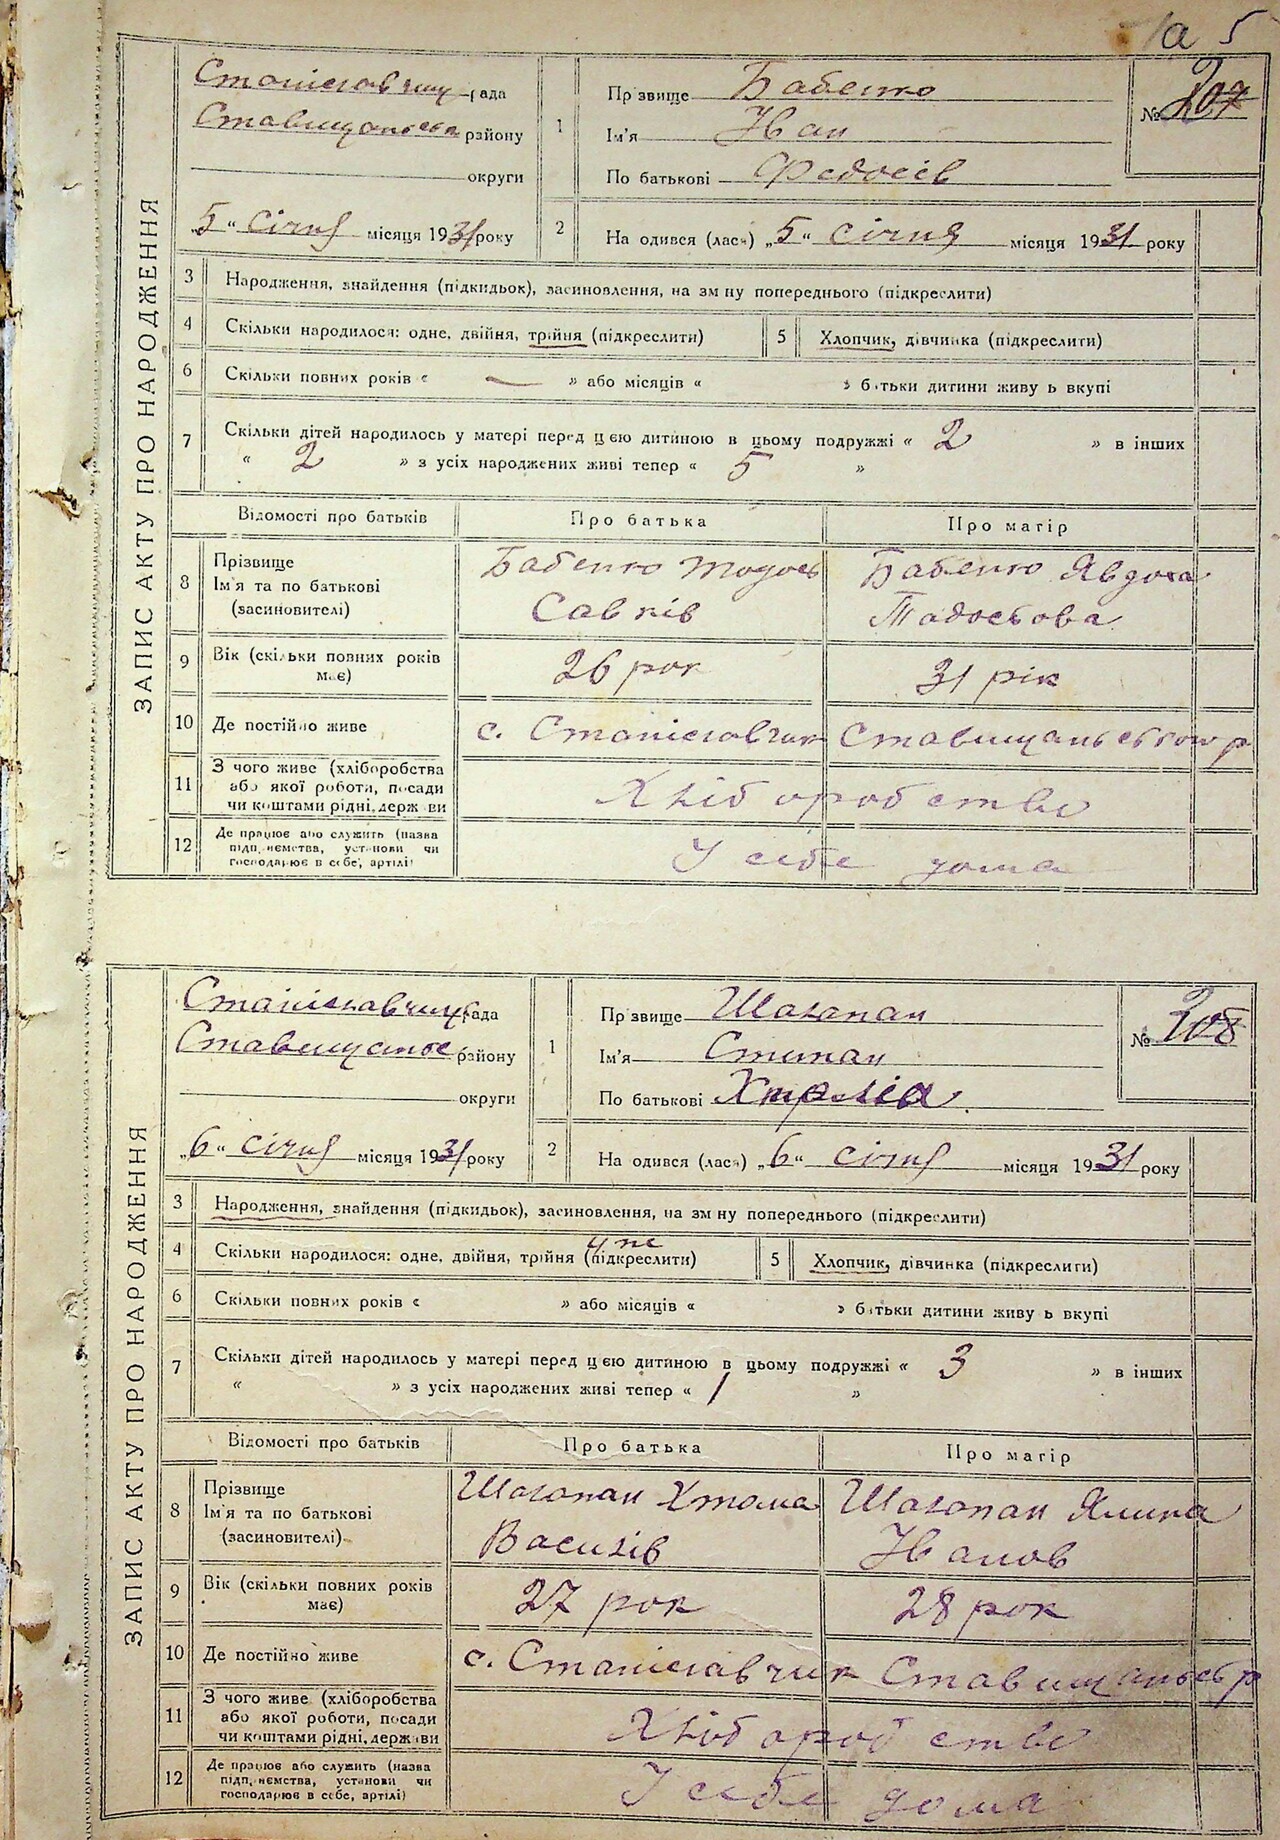 1а 5
ЗАПИС АКТУ ПРО НАРОДЖЕННЯ
Станіславчик рада
Ставищанська району
округи
„5“ січня місяця 1931 року
1
Прізвище Бабенко
Ім'я Иван
По батькові Федосів
№ 207
2
На одився (лася) „5“ січня місяця 1931 року
3 Народження, знайдення (підкидьок), засиновлення, на зм ну попереднього (підкреслити)
4 Скільки народилося: одне, двійня, трійня (підкреслити) 5 Хлопчик, дівчинка (підкреслити)
6 Скільки повних років « — » або місяців « » батьки дитини живу ь вкупі
7 Скільки дітей народилось у матері перед цією дитиною в цьому подружжі « 2 » в інших
« 2 » з усіх народжених живі тепер « 5 »
Відомості про батьків Про батька Про матір
8 Прізвище
Ім'я та по батькові
(засиновителі)
Бабенко Тодось
Савків
Бабенко Явдоха
Тадосьова
9 Вік (скільки повних років має) 26 рок 31 рік
10 Де постійно живе с. Станіславчик Ставищанського р
11 З чого живе (хліборобства
або якої роботи, посади
чи коштами рідні, держави
Хліборобство
12 Де працює або служить (назва
підприємства, установи чи
господарює в себе, артілі)
У себе дома
ЗАПИС АКТУ ПРО НАРОДЖЕННЯ
Станіславчик рада
Ставищансь району
округи
„6“ січня місяця 1931 року
1
Прізвище Шагопан
Ім'я Степан
По батькові
№ 208
2
На одився (лася) „6“ січня місяця 1931 року
3 Народження, знайдення (підкидьок), засиновлення, на зм ну попереднього (підкреслити)
4 Скільки народилося: одне, двійня, трійня (підкреслити) 5 Хлопчик, дівчинка (підкреслити)
6 Скільки повних років « » або місяців « » батьки дитини живу ь вкупі
7 Скільки дітей народилось у матері перед цією дитиною в цьому подружжі « 3 » в інших
« » з усіх народжених живі тепер « 1 »
Відомості про батьків Про батька Про матір
8 Прізвище
Ім'я та по батькові
(засиновителі)
Шагопан Хтома
Василів
Шагопан Ялина
Иванов
9 Вік (скільки повних років має) 27 рок 28 рок
10 Де постійно живе с. Станіславчик Ставищансь р
11 З чого живе (хліборобства
або якої роботи, посади
чи коштами рідні, держави
Хліборобство
12 Де працює або служить (назва
підприємства, установи чи
господарює в себе, артілі)
У себе дома